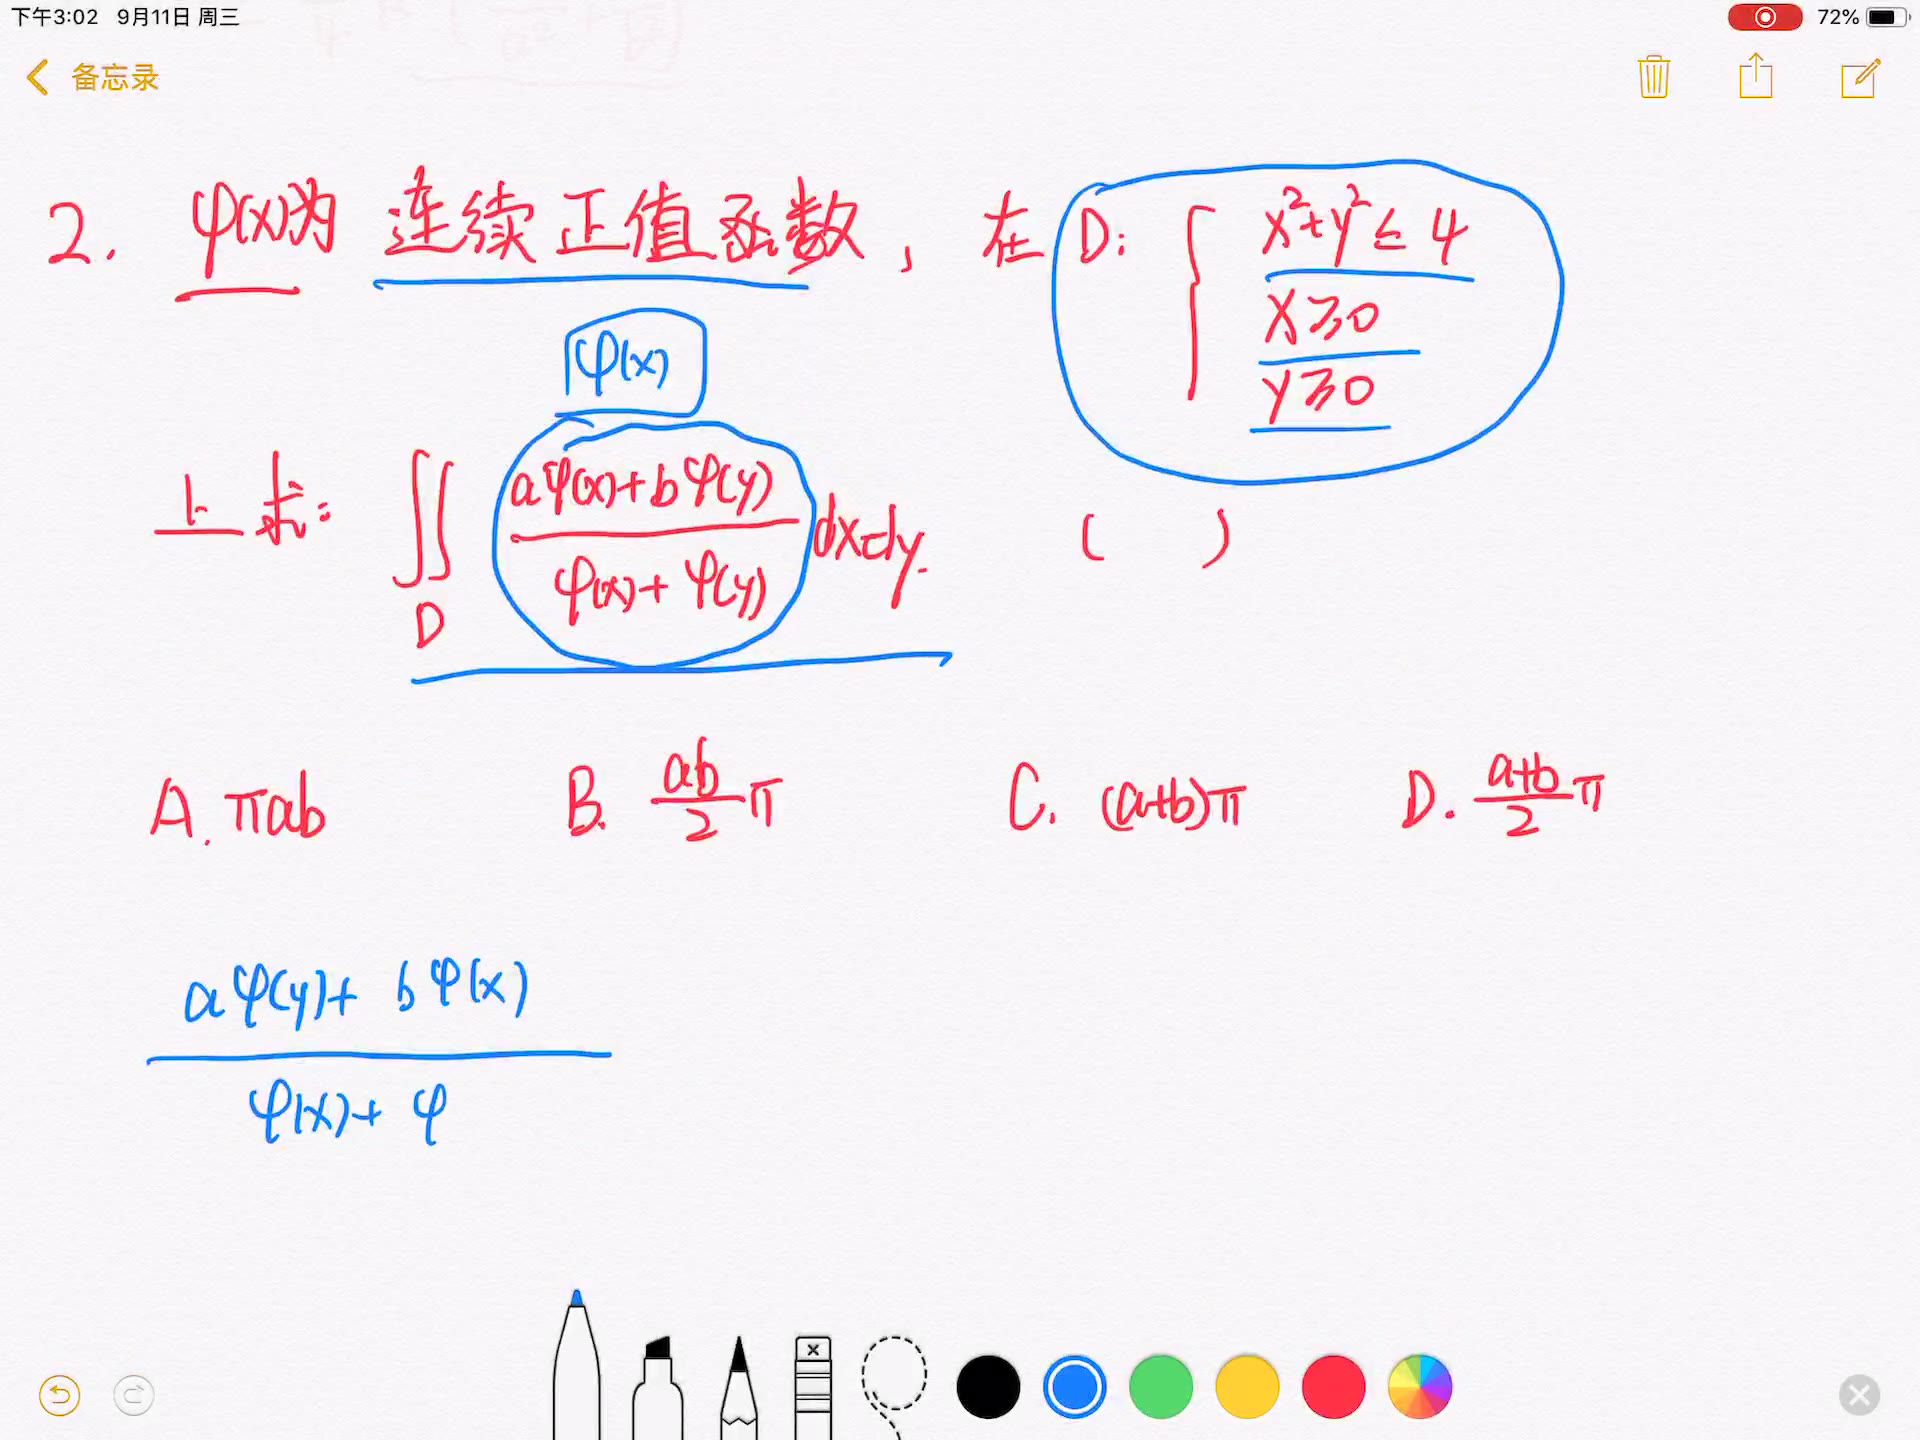 下午3:02 9月11日 周三
72%
备忘录
2. φ(x)为 连续正值函数, 在 D: { x²+y²≤4
x≥0
y≥0
φ(x)
上求: ∬_D (aφ(x)+bφ(y))/(φ(x)+φ(y)) dxdy. ( )
A. πab B. ab/2 π C. (a+b)π D. a+b/2 π
aφ(y)+ bφ(x)
φ(x)+ φ